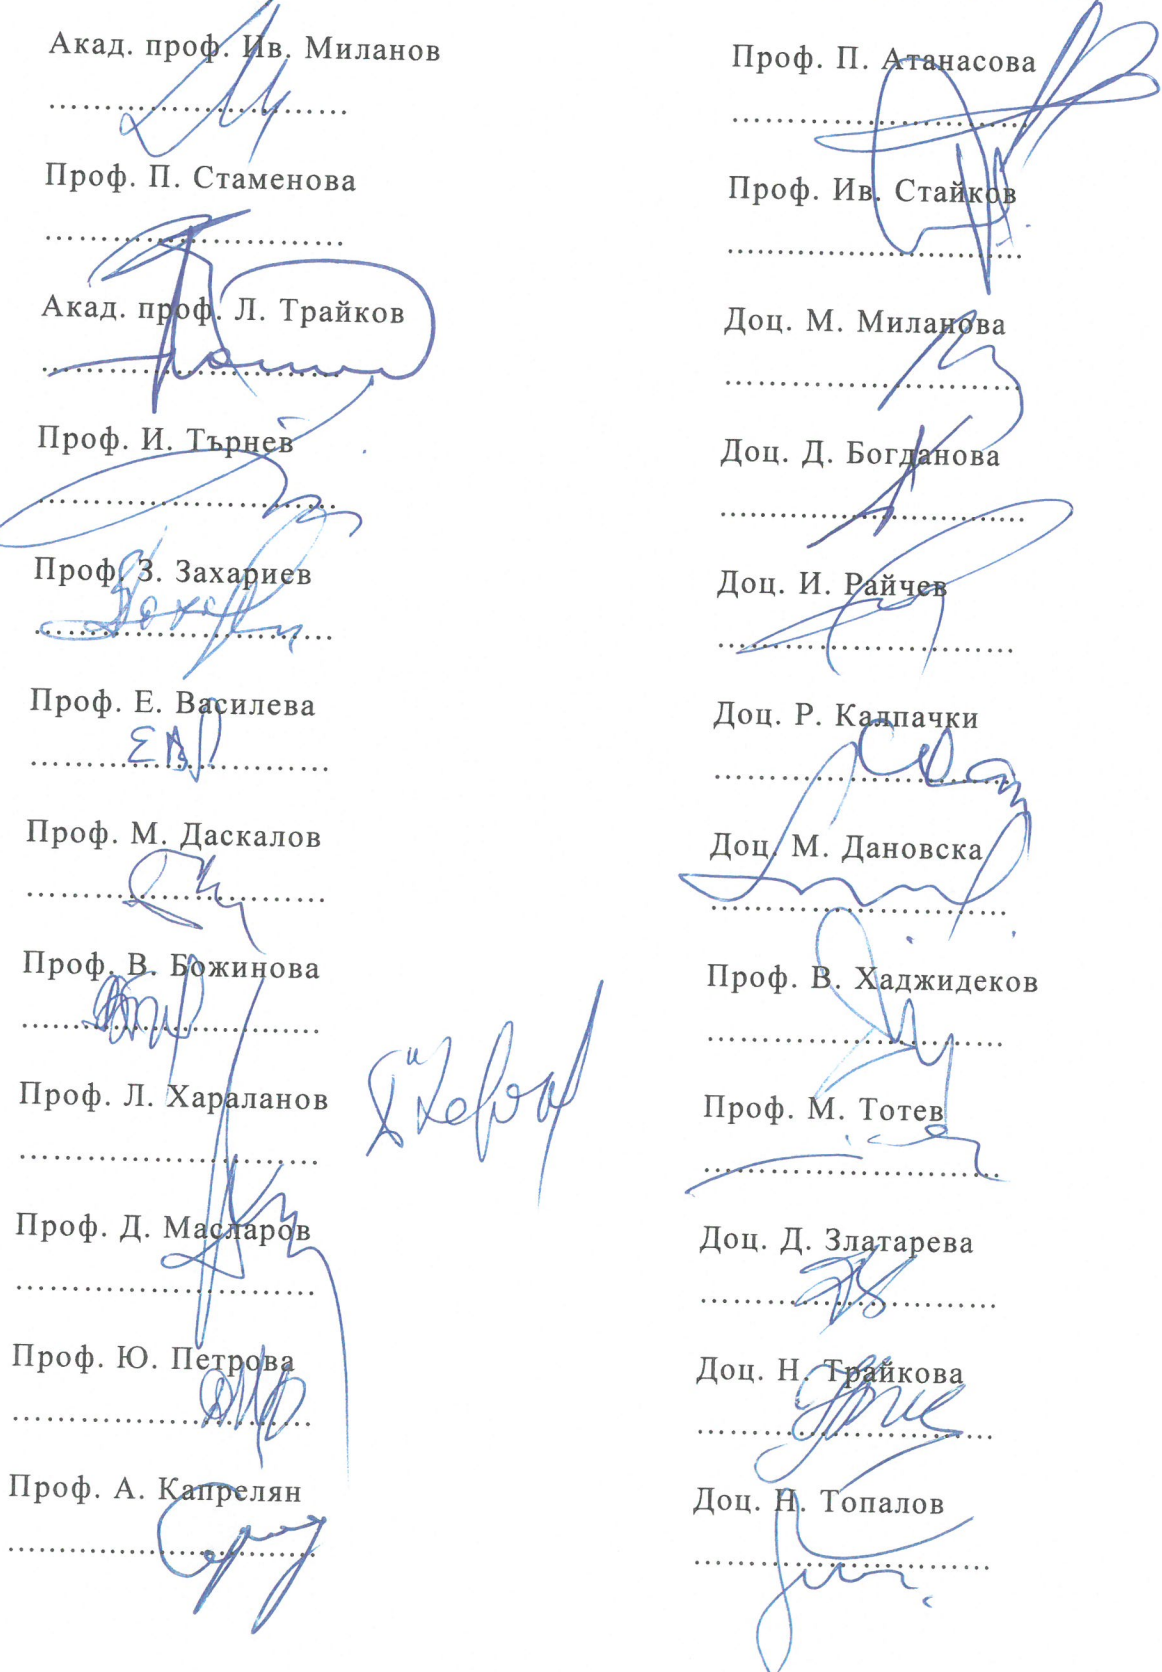 Акад. проф. Ив. Миланов
...........................
Проф. П. Стаменова
...........................
Акад. проф. Л. Трайков
...........................
Проф. И. Търнев
...........................
Проф. З. Захариев
...........................
Проф. Е. Василева
...........................
Проф. М. Даскалов
...........................
Проф. В. Божинова
...........................
Проф. Л. Хараланов
...........................
Проф. Д. Масларов
...........................
Проф. Ю. Петрова
...........................
Проф. А. Капрелян
............................
Проф. П. Атанасова
...........................
Проф. Ив. Стайков
...........................
Доц. М. Миланова
...........................
Доц. Д. Богданова
............................
Доц. И. Райчев
...........................
Доц. Р. Калпачки
...........................
Доц. М. Дановска
...........................
Проф. В. Хаджидеков
...........................
Проф. М. Тотев
...........................
Доц. Д. Златарева
...........................
Доц. Н. Трайкова
...........................
Доц. Н. Топалов
...........................